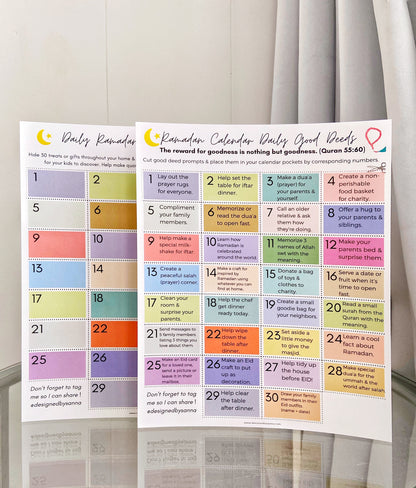 Daily Ramadan
Hide 30 treats or gifts throughout your home &
for your kids to discover. Help make
1
2
5
6
9
10
13
14
17
18
21
22
25
26
29
Don't forget to tag
me so I can share!
#designedbysanna
Ramadan Calendar Daily Good Deeds
The reward for goodness is nothing but goodness. (Quran 55:60)
Cut good deed prompts & place them in your calendar pockets by corresponding numbers.
1 Lay out the
prayer rugs
for everyone.
2 Help set the
table for iftar
dinner.
3 Make a dua'a
(prayer) for your
parents &
yourself.
4 Create a non-
perishable
food basket
for charity.
5 Compliment
your family
members.
6 Memorize
or read the dua'a
to open fast.
7 Call an older
relative & ask
them how
they're doing.
8 Offer a hug to
your parents &
siblings.
9 Help make a
special milk-
shake for iftar.
10 Learn how
Ramadan is
celebrated
around the world.
11 Memorize 3
names of Allah
swt with the
meaning.
12 Make your
parents bed &
surprise them.
13 Create a
peaceful salah
(prayer) corner.
14 Make a craft for
inspired by
Ramadan using
whatever you can
find at home.
15 Donate a bag
of toys &
clothes to
charity.
16 Serve a date or
fruit when it's
time to open
fast.
17 Clean your
room &
surprise your
parents.
18 Help the chef
get dinner
ready today.
19 Create a small
goodie bag for
your neighbors.
20 Read a small
surah from the
Quran with the
meaning.
21 Send messages to
3 family members
telling 3 things you
love about them
22 Help wipe
down the
table after
dinner.
23 Set aside a
little money
to give the
masjid.
24 Learn a cool
fact about
Ramadan.
25 Make an Eid card
for a loved one,
send a picture or
leave it in their
mailbox.
26 Make an Eid
craft to put
up as
decoration.
27 Help tidy up
the house
before EID!
28 Make a
special dua'a for the
ummah & the
world after salah
Don't forget to tag
me so I can share!
#designedbysanna
29 Help clear
the table
after dinner.
30 Draw your family
members in their
Eid outfits.
(name + date)